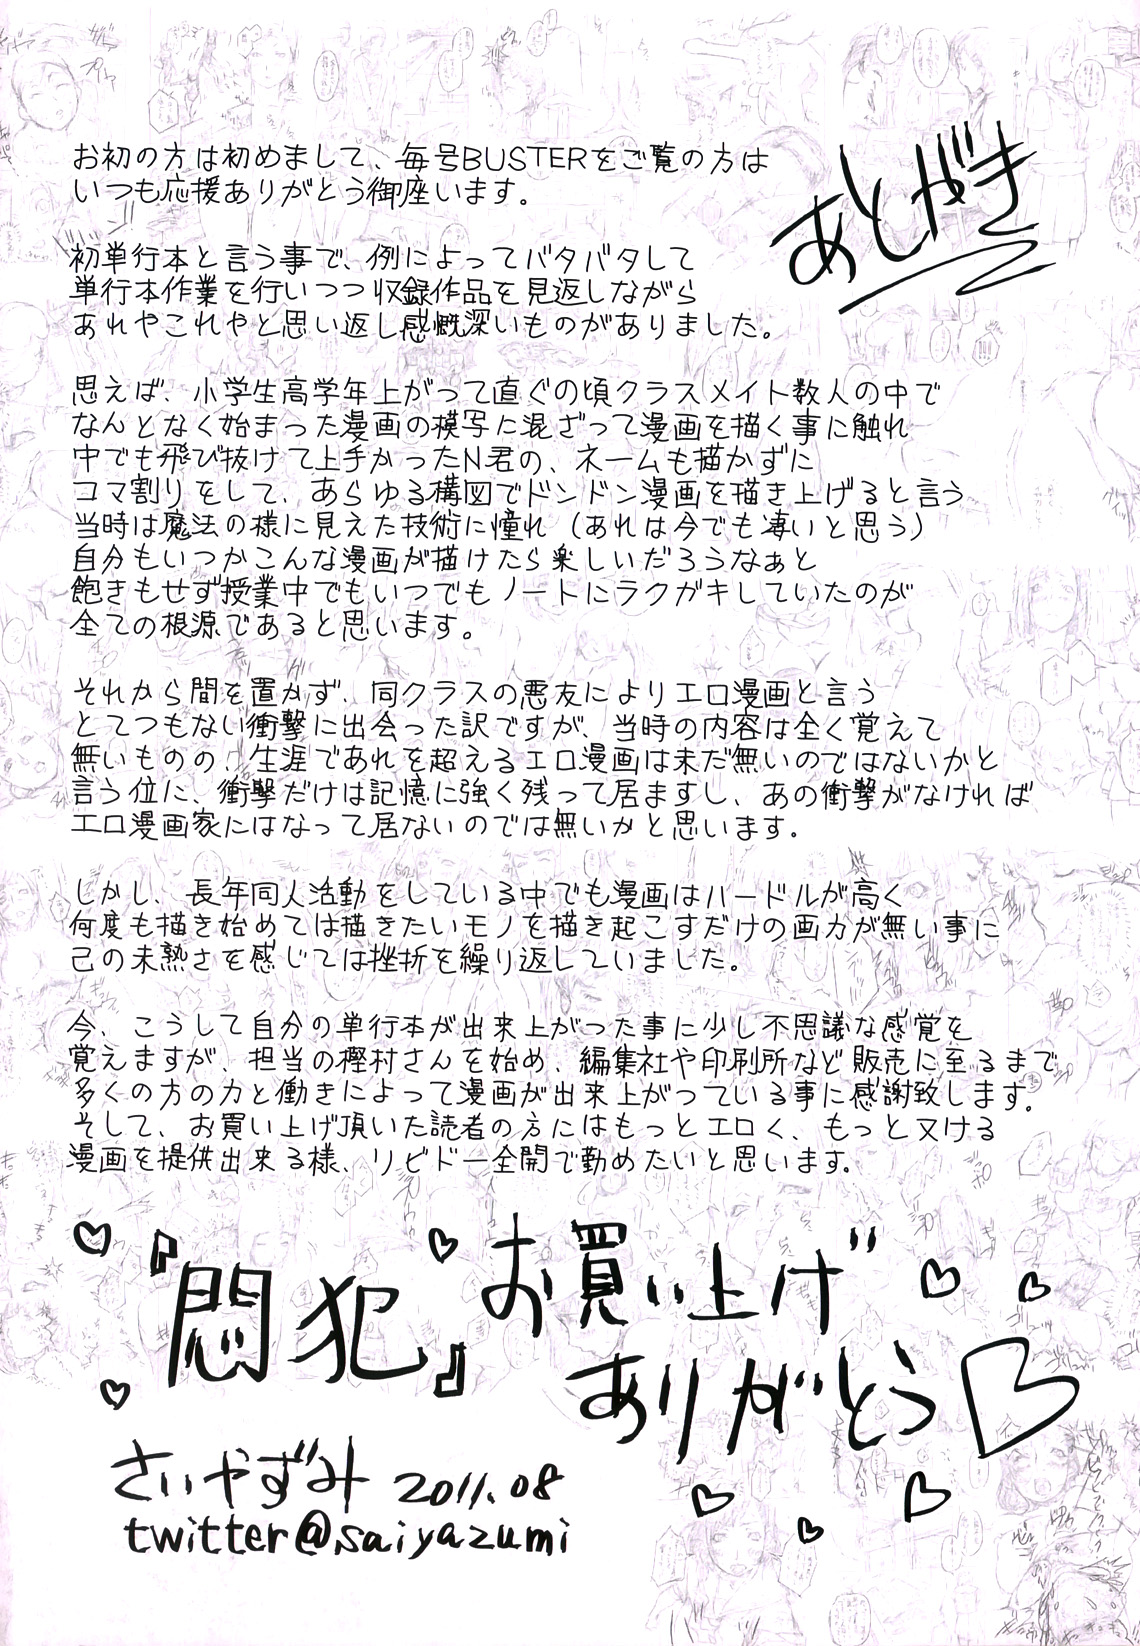 あとがき
お初の方は初めまして、毎号BUSTERをご覧の方は
いつも応援ありがとう御座います。
初単行本と言う事で、例によってバタバタして
単行本作業を行いつつ収録作品を見返しながら
あれやこれやと思い返し感慨深いものがありました。
思えば、小学生高学年上がって直ぐの頃クラスメイト数人の中で
なんとなく始まった漫画の模写に混ざって漫画を描く事に触れ
中でも飛び抜けて上手かったN君の、ネームも描かずに
コマ割りをして、あらゆる構図でドンドン漫画を描き上げると言う
当時は魔法の様に見えた技術に憧れ（あれは今でも凄いと思う）
自分もいつかこんな漫画が描けたら楽しいだろうなぁと
飽きもせず授業中でもいつでもノートにラクガキしていたのが
全ての根源であると思います。
それから間を置かず、同クラスの悪友によりエロ漫画と言う
とてつもない衝撃に出会った訳ですが、当時の内容は全く覚えて
無いものの、生涯であれを超えるエロ漫画は未だ無いのではないかと
言う位に、衝撃だけは記憶に強く残って居ますし、あの衝撃がなければ
エロ漫画家にはなって居ないのでは無いかと思います。
しかし、長年同人活動をしている中でも漫画はハードルが高く
何度も描き始めては描きたいモノを描き起こすだけの画力が無い事に
己の未熟さを感じては挫折を繰り返していました。
今、こうして自分の単行本が出来上がった事に少し不思議な感覚を
覚えますが、担当の樫村さんを始め、編集社や印刷所など販売に至るまで、
多くの方の力と働きによって漫画が出来上がっている事に感謝致します。
そして、お買い上げ頂いた読者の方にはもっとエロく、もっと又ける
漫画を提供出来る様、リビドー全開で勤めたいと思います。
『悶犯』お買い上げ
ありがとう
さいやずみ 2011.08
twitter@saiyazumi